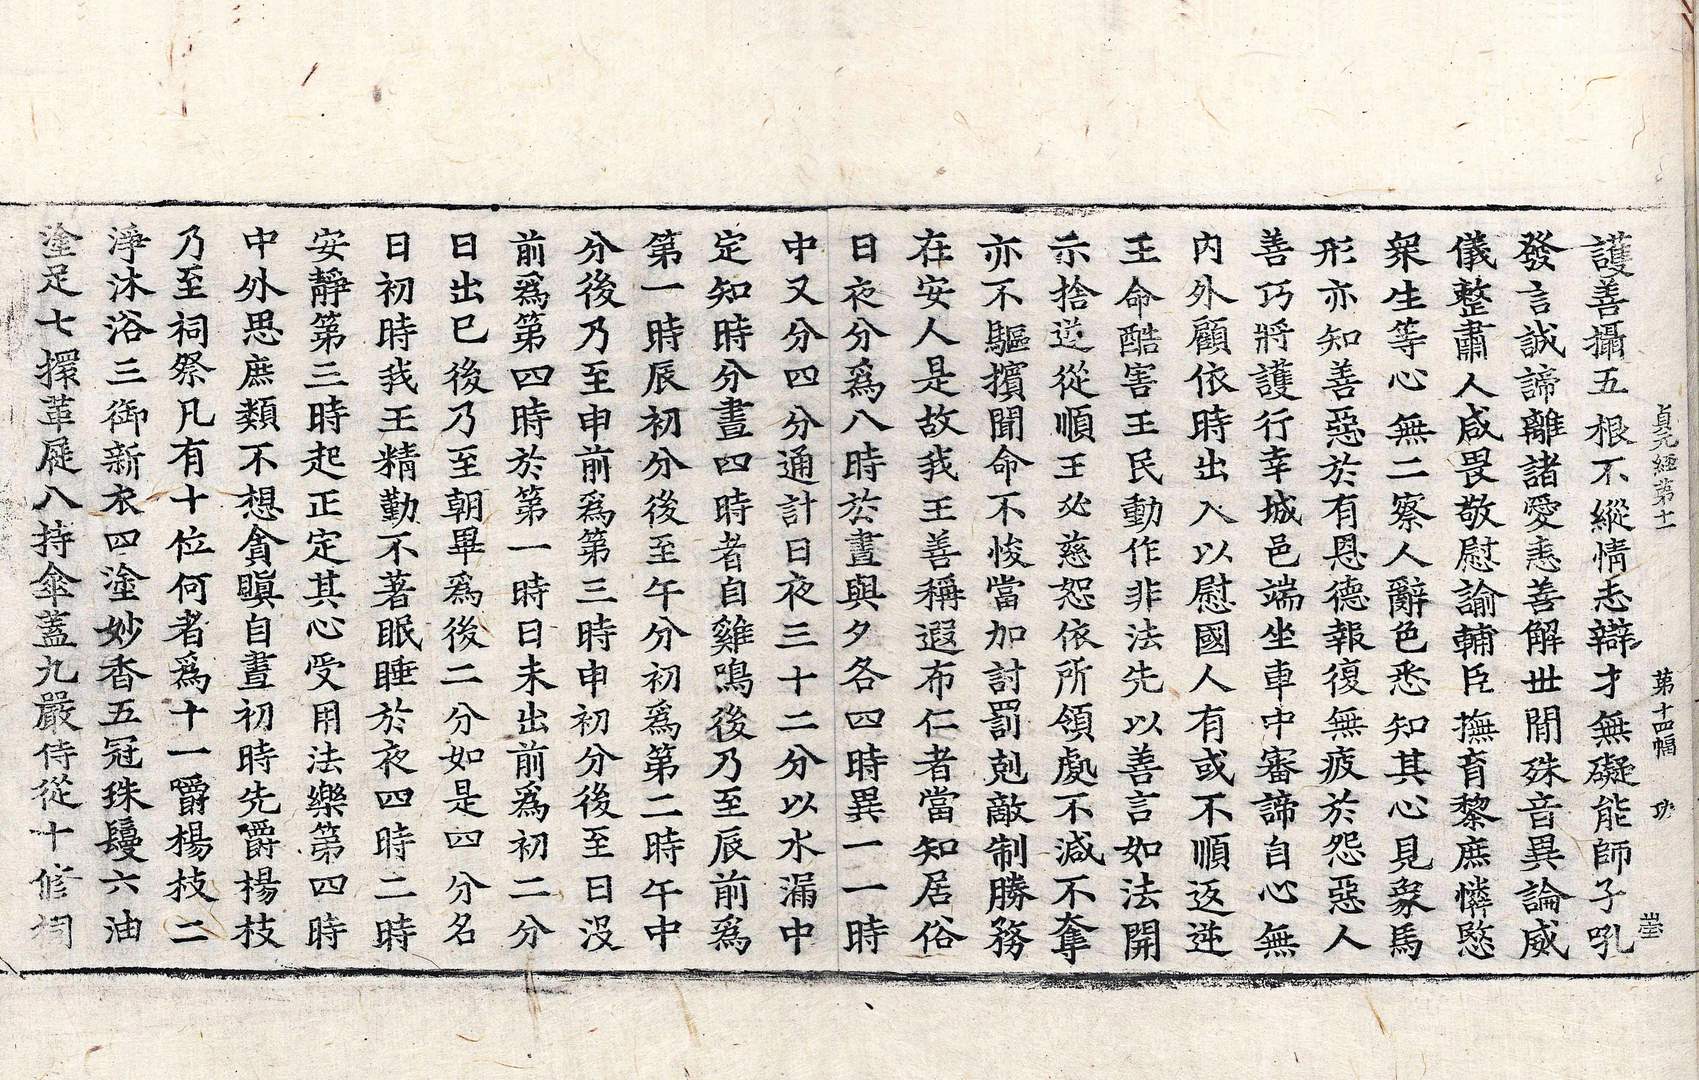 貞元経第十一 第十四幅 功
護善攝五根不縱情志辯才無礙能師子吼
發言誠諦離諸愛恚善解世間殊音異論威
儀整肅人咸畏敬慰諭輔臣撫育黎庶憐愍
衆生等心無二察人辭色悉知其心見象馬
形亦知善惡於有恩德報復無疲於怨惡人
善巧將護行幸城邑端坐車中審諦自心無
内外顧依時出入以慰國人有或不順返逆
王命酷害王民動作非法先以善言如法開
示捨逆從順王必慈恕依所領處不減不奪
亦不驅擯聞命不悛當加討罰剋敵制勝務
在安人是故我王善稱遐布仁者當知居俗
日夜分爲八時於晝與夕各四時異一一時
中又分四分通計日夜三十二分以水漏中
定知時分晝四時者自雞鳴後乃至辰前爲
第一時辰初分後至午分初爲第二時午中
分後乃至申前爲第三時申初分後至日没
前爲第四時於第一時日未出前爲初二分
日出已後乃至朝畢爲後二分如是四分名
日初時我王精勤不著眠睡於夜四時二時
安靜第三時起正定其心受用法樂第四時
中外思庶類不想貪瞋自晝初時先嚼楊枝
乃至祠祭凡有十位何者爲十一嚼楊枝二
淨沐浴三御新衣四塗妙香五冠珠鬘六油
塗足七擐革屣八持傘蓋九嚴侍從十修祠